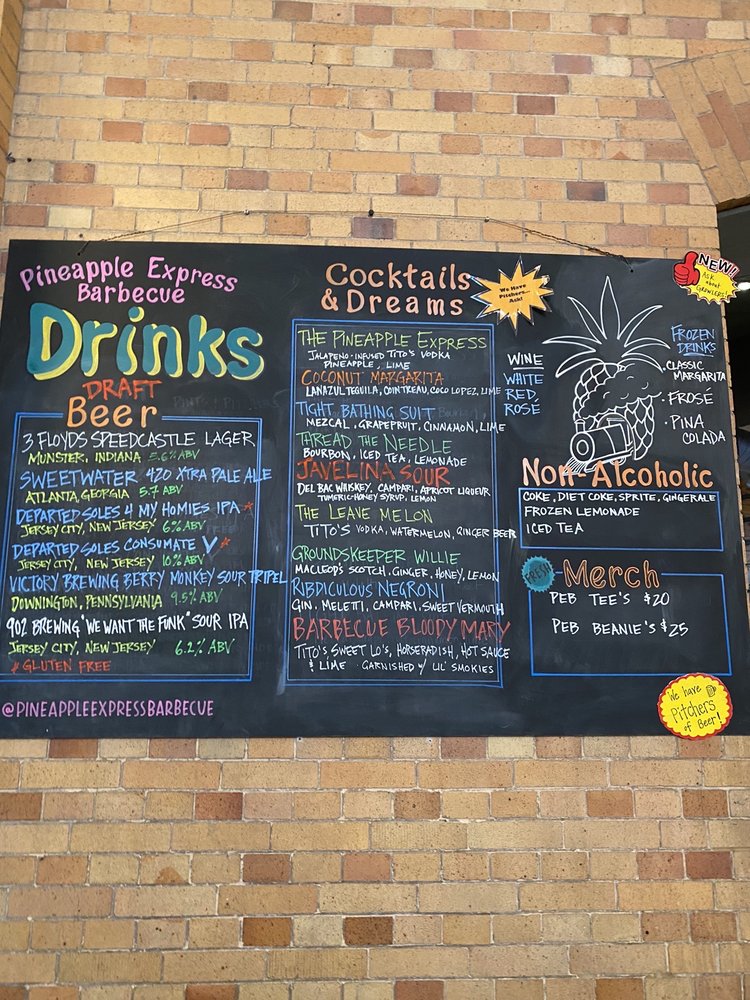 Pineapple Express
Barbecue
Drinks
DRAFT
Beer
3 FLOYDS SPEEDCASTLE LAGER
MUNSTER, INDIANA 5.6% ABV
SWEETWATER 420 XTRA PALE ALE
ATLANTA, GEORGIA 5.7 ABV
DEPARTED SOLES 4 MY HOMIES IPA *
JERSEY CITY, NEW JERSEY 6% ABV
DEPARTED SOLES CONSUMATE V *
JERSEY CITY, NEW JERSEY 10% ABV
VICTORY BREWING BERRY MONKEY SOUR TRIPEL
DOWNINGTON, PENNSYLVANIA 9.5% ABV
902 BREWING "WE WANT THE FUNK" SOUR IPA
JERSEY CITY, NEW JERSEY 6.2% ABV
* GLUTEN FREE
@PINEAPPLEEXPRESSBARBECUE
Cocktails
& Dreams
We Have
Pitchers...
Ask!
THE PINEAPPLE EXPRESS
JALAPENO-INFUSED TITO'S VODKA
PINEAPPLE, LIME
COCONUT MARGARITA
LANAZUL TEQUILA, COINTREAU, COCO LOPEZ, LIME
TIGHT BATHING SUIT
MEZCAL, GRAPEFRUIT, CINNAMON, LIME
THREAD THE NEEDLE
BOURBON, ICED TEA, LEMONADE
JAVELINA SOUR
DEL BAC WHISKEY, CAMPARI, APRICOT LIQUEUR
TUMERIC-HONEY SYRUP, LEMON
THE LEAVE MELON
TITO'S VODKA, WATERMELON, GINGER BEER
GROUNDSKEEPER WILLIE
MACLEOD'S SCOTCH, GINGER, HONEY, LEMON
RIBDICULOUS NEGRONI
GIN, MELETI, CAMPARI, SWEET VERMOUTH
BARBECUE BLOODY MARY
TITO'S SWEET LO'S, HORSERADISH, HOT SAUCE
& LIME GARNISHED W/ LIL' SMOKIES
WINE
WHITE
RED,
ROSÉ
NEW!
Ask
about
GROWLERS!
FROZEN
DRINKS
· CLASSIC
MARGARITA
· FROSÉ
· PINA
COLADA
Non-Alcoholic
COKE, DIET COKE, SPRITE, GINGERALE
FROZEN LEMONADE
ICED TEA
FRESH
Merch
PEB TEE'S $20
PEB BEANIE'S $25
We have
Pitchers
of Beer!